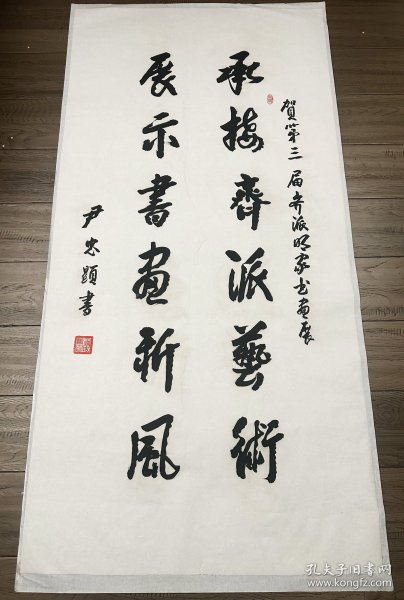 賀第三届齐派名家书畫展
承接齊派藝術
展示書畫新風
尹忠顕書
孔夫子旧书网
www.kongfz.com